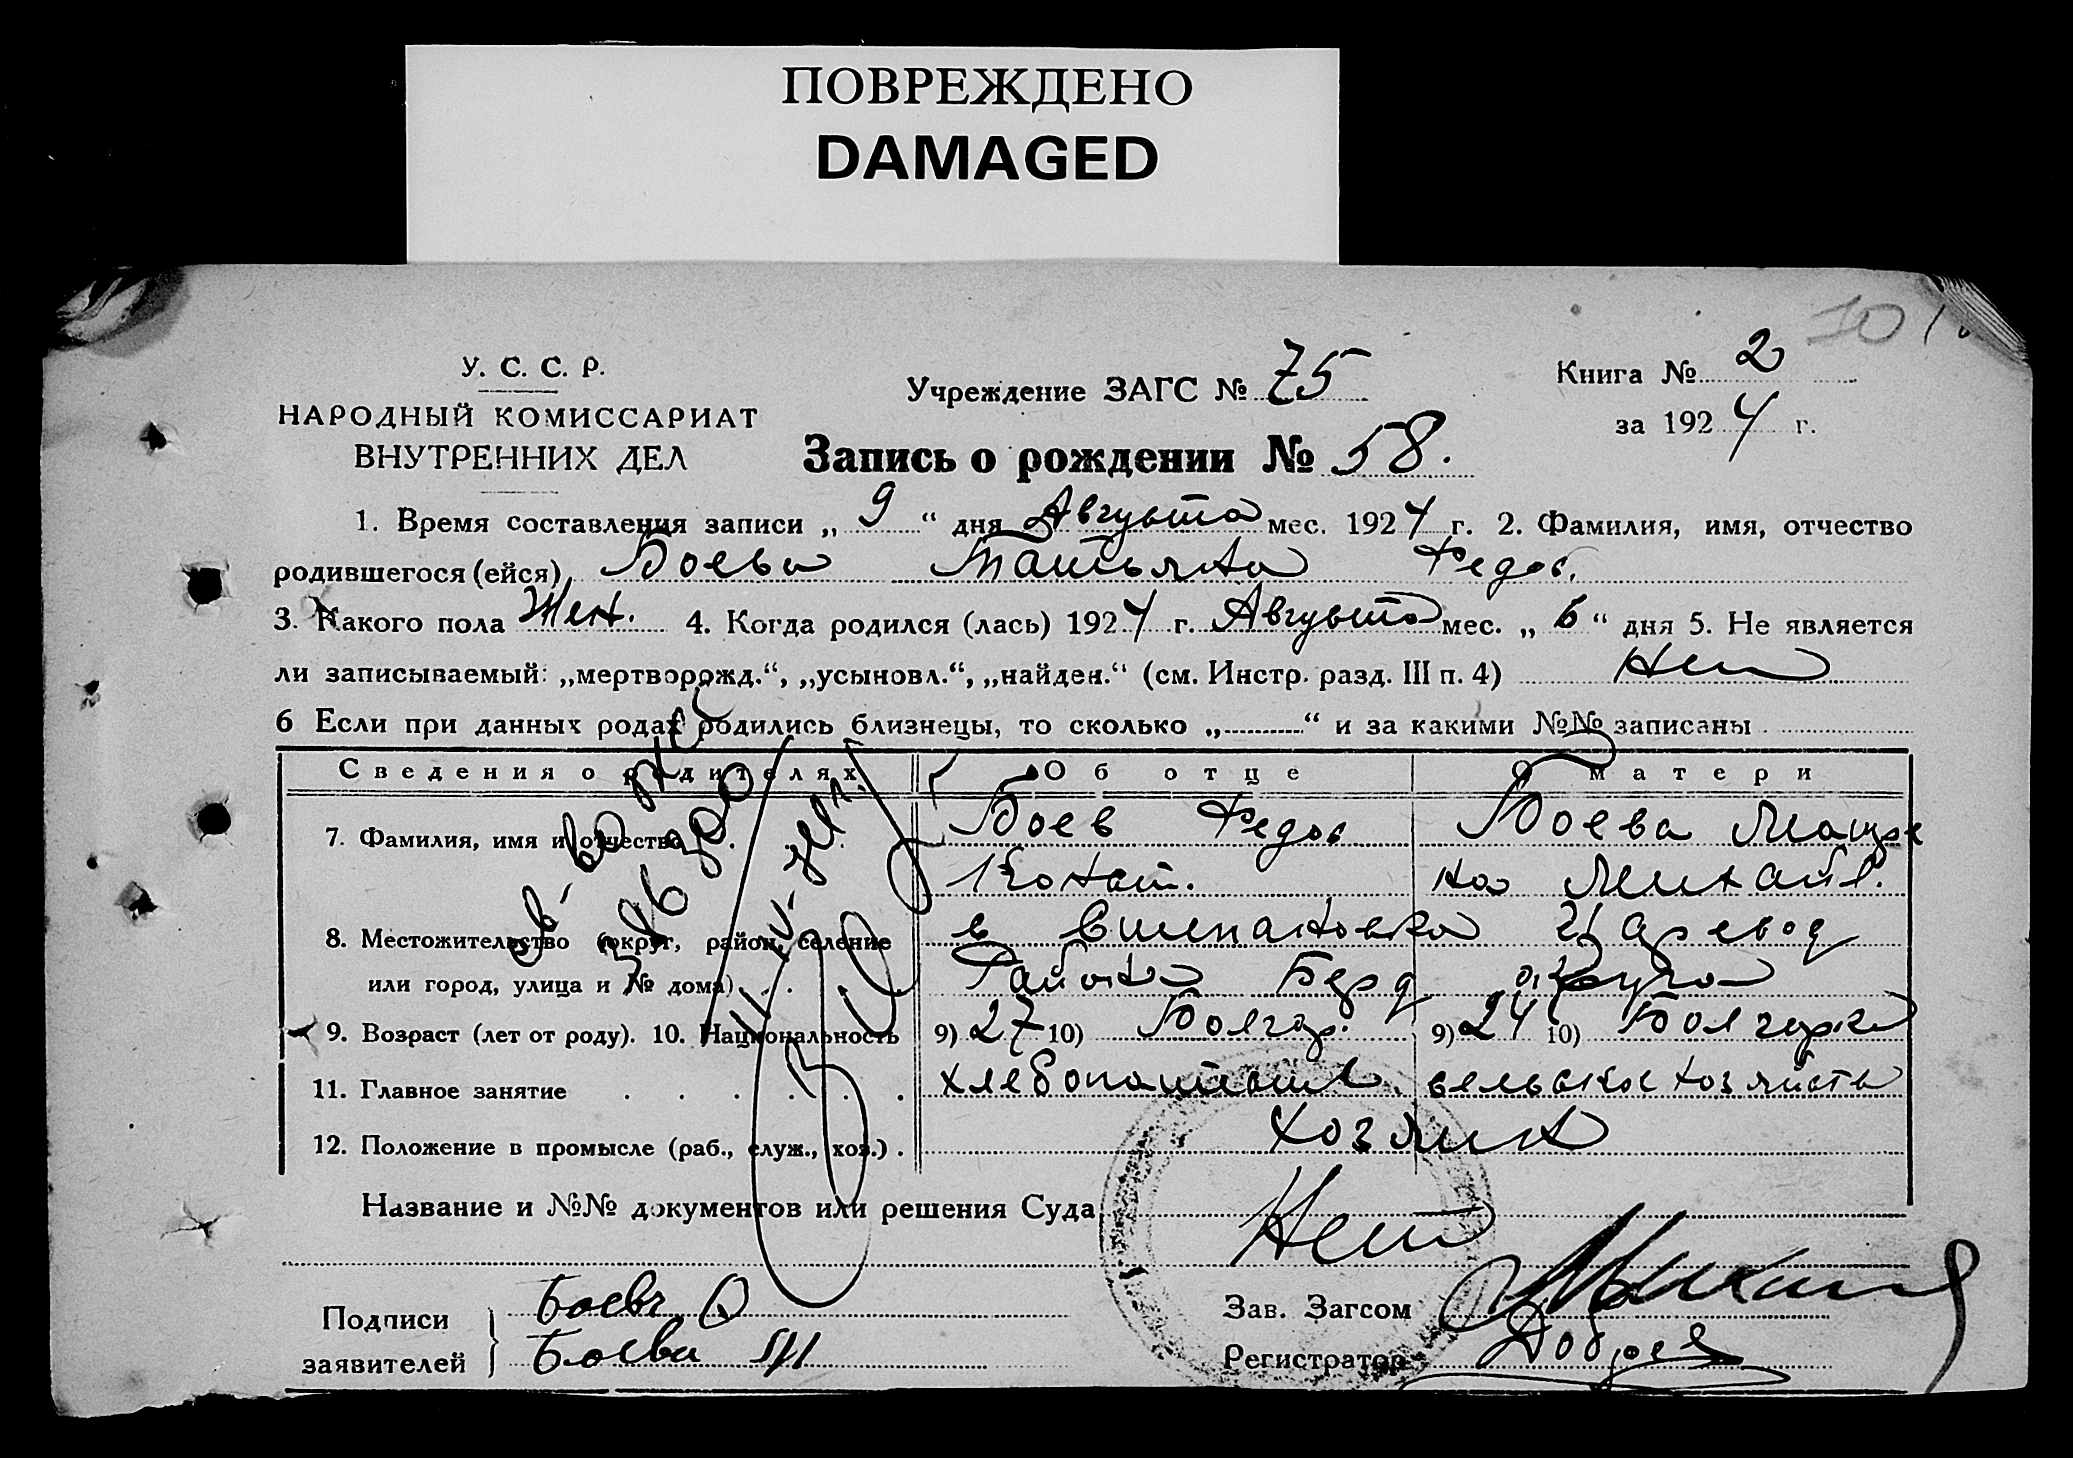 ПОВРЕЖДЕНО
DAMAGED
У. С. С. Р.
НАРОДНЫЙ КОМИССАРИАТ
ВНУТРЕННИХ ДЕЛ
Учреждение ЗАГС № 75
Книга № 2
за 1924 г.
10
Запись о рождении № 58.
1. Время составления записи „ 9 “ дня Августа мес. 1924 г. 2. Фамилия, имя, отчество
родившегося (ейся) Боева Татьяна Федос.
3. Какого пола Жен. 4. Когда родился (лась) 1924 г. Августа мес. „ 6 “ дня 5. Не является
ли записываемый: „мертворожд.“, „усыновл.“, „найден.“ (см. Инстр. разд. III п. 4) Нет
6 Если при данных родах родились близнецы, то сколько „ “ и за какими №№ записаны
Сведения о родителях Об отце О матери
7. Фамилия, имя и отчество Боев Федос Боева
Конст. на Михайл.
8. Местожительство (округ, район, селение в Степановка Царевод
или город, улица и № дома) Района Берд округа
9. Возраст (лет от роду). 10. Национальность 9) 27 10) Болгар. 9) 24 10) Болгарка
11. Главное занятие хлебопашество сельское хозяйств
12. Положение в промысле (раб., служ., хоз.) . хозяин
Название и №№ документов или решения Суда Нет
Подписи
заявителей
Боев
Боева
Зав. Загсом
Регистратор